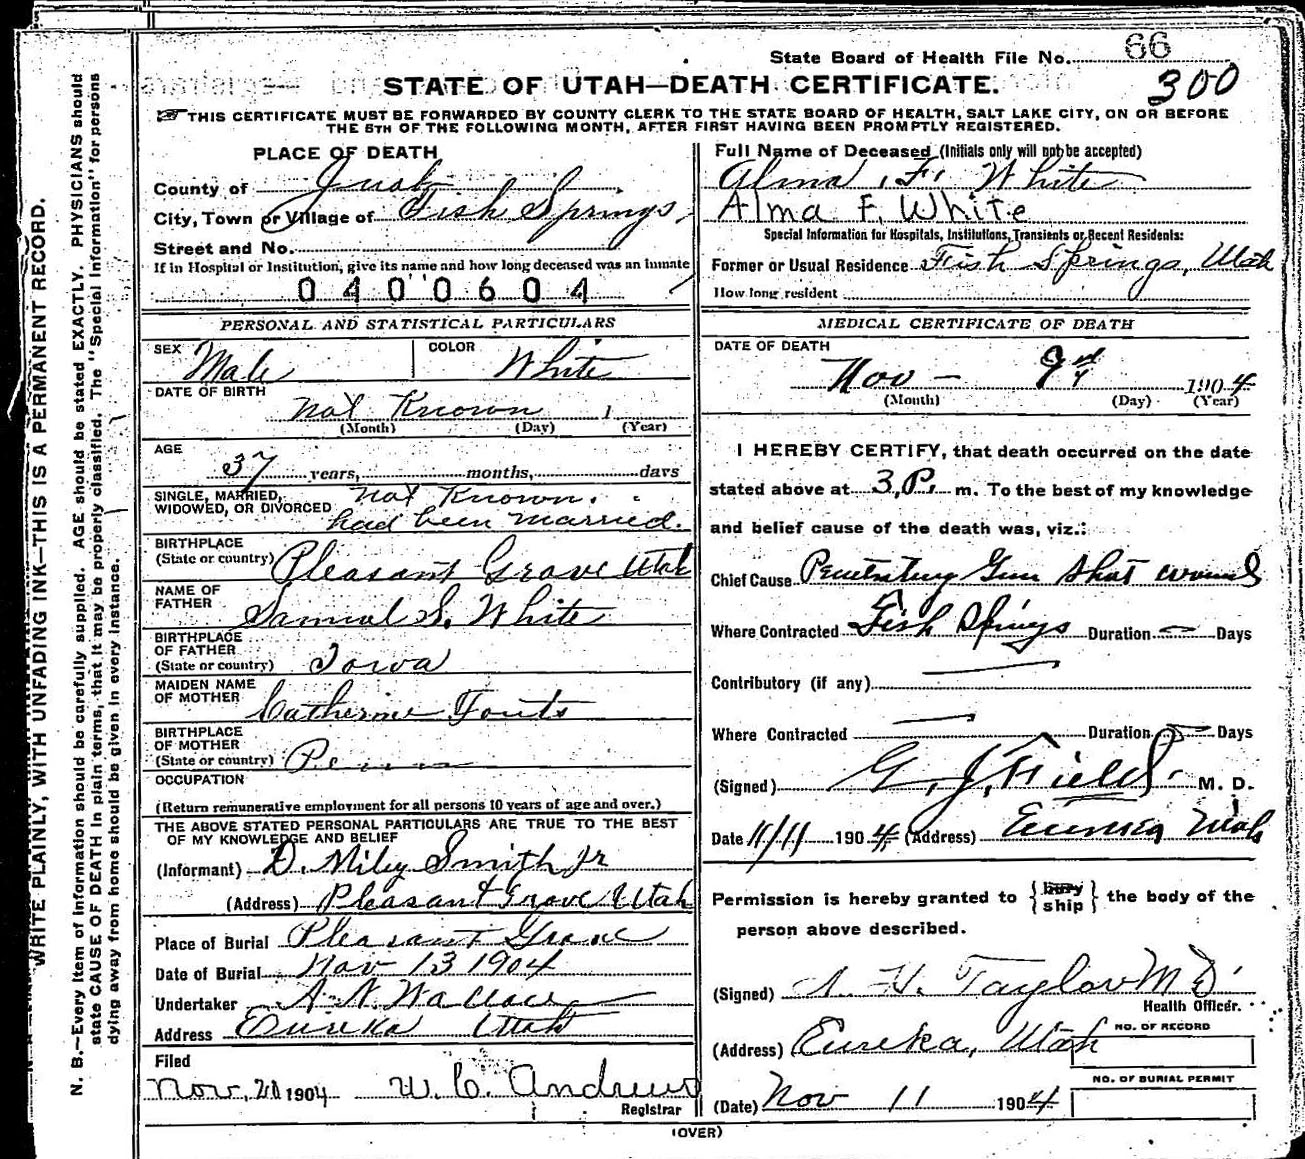 State Board of Health File No. 66
300
STATE OF UTAH—DEATH CERTIFICATE.
THIS CERTIFICATE MUST BE FORWARDED BY COUNTY CLERK TO THE STATE BOARD OF HEALTH, SALT LAKE CITY, ON OR BEFORE
THE 5TH OF THE FOLLOWING MONTH, AFTER FIRST HAVING BEEN PROMPTLY REGISTERED.
PLACE OF DEATH
County of Juab
City, Town or Village of Fish Springs,
Street and No.
If in Hospital or Institution, give its name and how long deceased was an inmate
0400604
PERSONAL AND STATISTICAL PARTICULARS
SEX Male COLOR White
DATE OF BIRTH
Not Known
(Month) (Day) (Year)
AGE
37 years, months, days
SINGLE, MARRIED, Not Known.
WIDOWED, OR DIVORCED had been married.
BIRTHPLACE
(State or country) Pleasant Grove Utah
NAME OF
FATHER Samuel S. White
BIRTHPLACE
OF FATHER
(State or country) Iowa
MAIDEN NAME
OF MOTHER Catherine Fouts
BIRTHPLACE
OF MOTHER
(State or country) Penn
OCCUPATION
(Return remunerative employment for all persons 10 years of age and over.)
THE ABOVE STATED PERSONAL PARTICULARS ARE TRUE TO THE BEST
OF MY KNOWLEDGE AND BELIEF
(Informant) D. Miley Smith Jr
(Address) Pleasant Grove Utah
Place of Burial Pleasant Grove
Date of Burial Nov 13 1904
Undertaker A. N. Wallace
Address Eureka Utah
Filed
Nov. 1904 W. C. Andrews
Registrar
Full Name of Deceased (Initials only will not be accepted)
Alma F. White
Alma F. White
Special Information for Hospitals, Institutions, Transients or Recent Residents:
Former or Usual Residence Fish Springs, Utah
How long resident
MEDICAL CERTIFICATE OF DEATH
DATE OF DEATH
Nov - 9th 1904
(Month) (Day) (Year)
I HEREBY CERTIFY, that death occurred on the date
stated above at 3 P. m. To the best of my knowledge
and belief cause of the death was, viz.:
Chief Cause Penetrating Gun shot wound
Where Contracted Fish Springs Duration — Days
Contributory (if any)
Where Contracted Duration Days
(Signed) G. J. Field M. D.
Date 11/11 1904 (Address) Eureka Utah
Permission is hereby granted to {bury ship} the body of the
person above described.
(Signed) Taylor M D
Health Officer.
NO. OF RECORD
(Address) Eureka, Utah
NO. OF BURIAL PERMIT
(Date) Nov 11 1904
(OVER)
WRITE PLAINLY, WITH UNFADING INK—THIS IS A PERMANENT RECORD.
N. B.—Every item of information should be carefully supplied. AGE should be stated EXACTLY. PHYSICIANS should
state CAUSE OF DEATH in plain terms, that it may be properly classified. The "Special Information" for persons
dying away from home should be given in every instance.